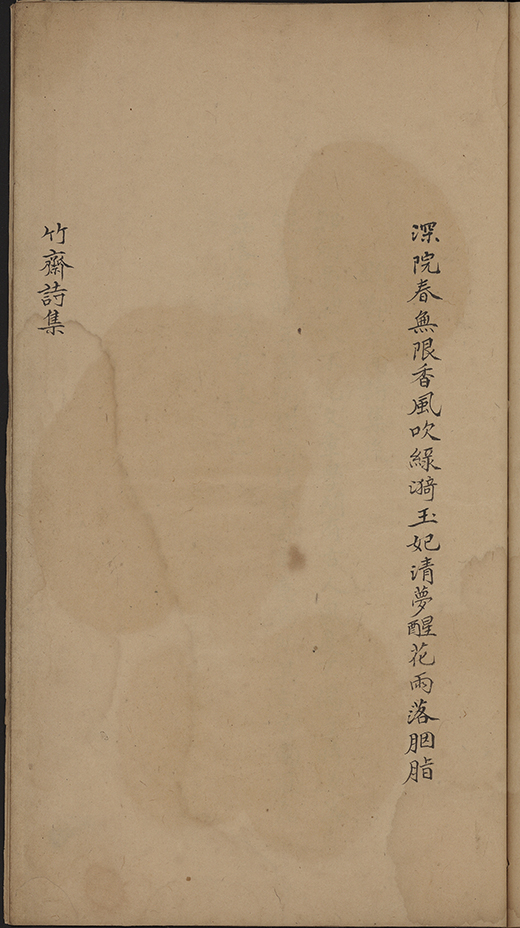 深院春無限香風吹綠漪玉妃清夢醒花雨落胭脂
竹齋詩集